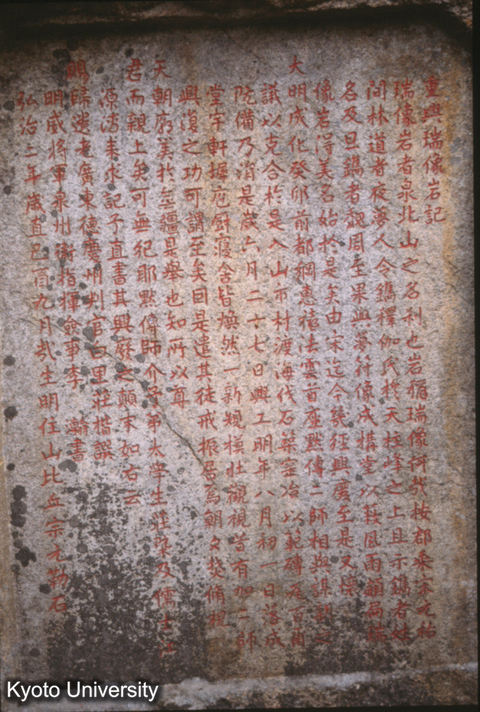 重興瑞像岩記
瑞像岩者泉北山之名刹也岩循瑞像何哉按郡乘宋元祐
間林道者夜夢人令鐫釋伽氏於天柱峰之上且示鐫者姓
名及旦鐫者魏周至果與夢符像成構室以蔽風雨額扁
像岩得美名始於是矣由宋迄今幾徑興廢至是又
大明成化癸卯前都綱惠福法雲首座默傳二師相與謀
議以克合於是入山市材渡海伐石築窑冶以範磚瓦百
院備乃消是歲六月二十七日興工明年八月初一日落成
堂宇軒 庖廚寢舍皆煥然一新規模壯觀視昔有加二師
興復之功可謂至矣因是遣其徒戒振居焉朝夕焚脩祝
天朝 於 疆是舉也知所以尊
君而親上矣可無紀耶默傳師介予弟太學生莊 及儒士
源濤來求記予直書其興廢之顛末如右云
賜歸進士廣東德慶州判官 里莊楷譔
明威將軍泉州衛指揮僉事李 瀚書
弘治二年歲直己酉九月哉生明住山比丘宗 勒石
Kyoto University